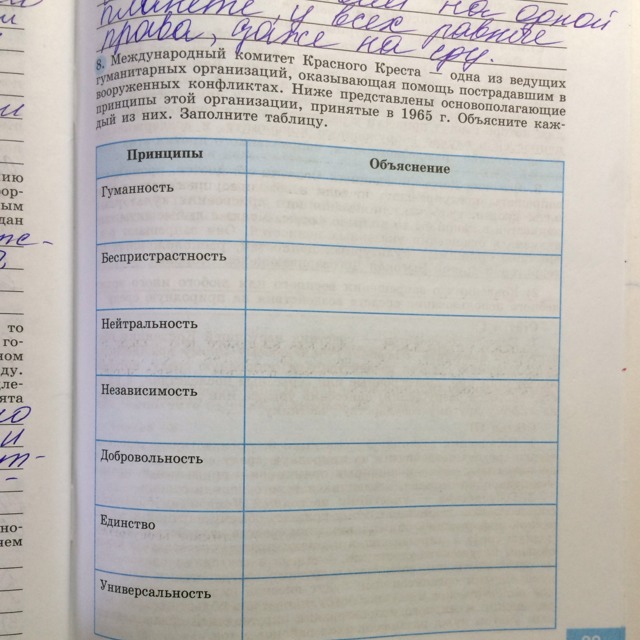 на одной
планете, у всех равные
права, даже на еду.
8. Международный комитет Красного Креста — одна из ведущих
гуманитарных организаций, оказывающая помощь пострадавшим в
вооруженных конфликтах. Ниже представлены основополагающие
принципы этой организации, принятые в 1965 г. Объясните каж-
дый из них. Заполните таблицу.
Принципы
Объяснение
Гуманность
Беспристрастность
Нейтральность
Независимость
Добровольность
Единство
Универсальность